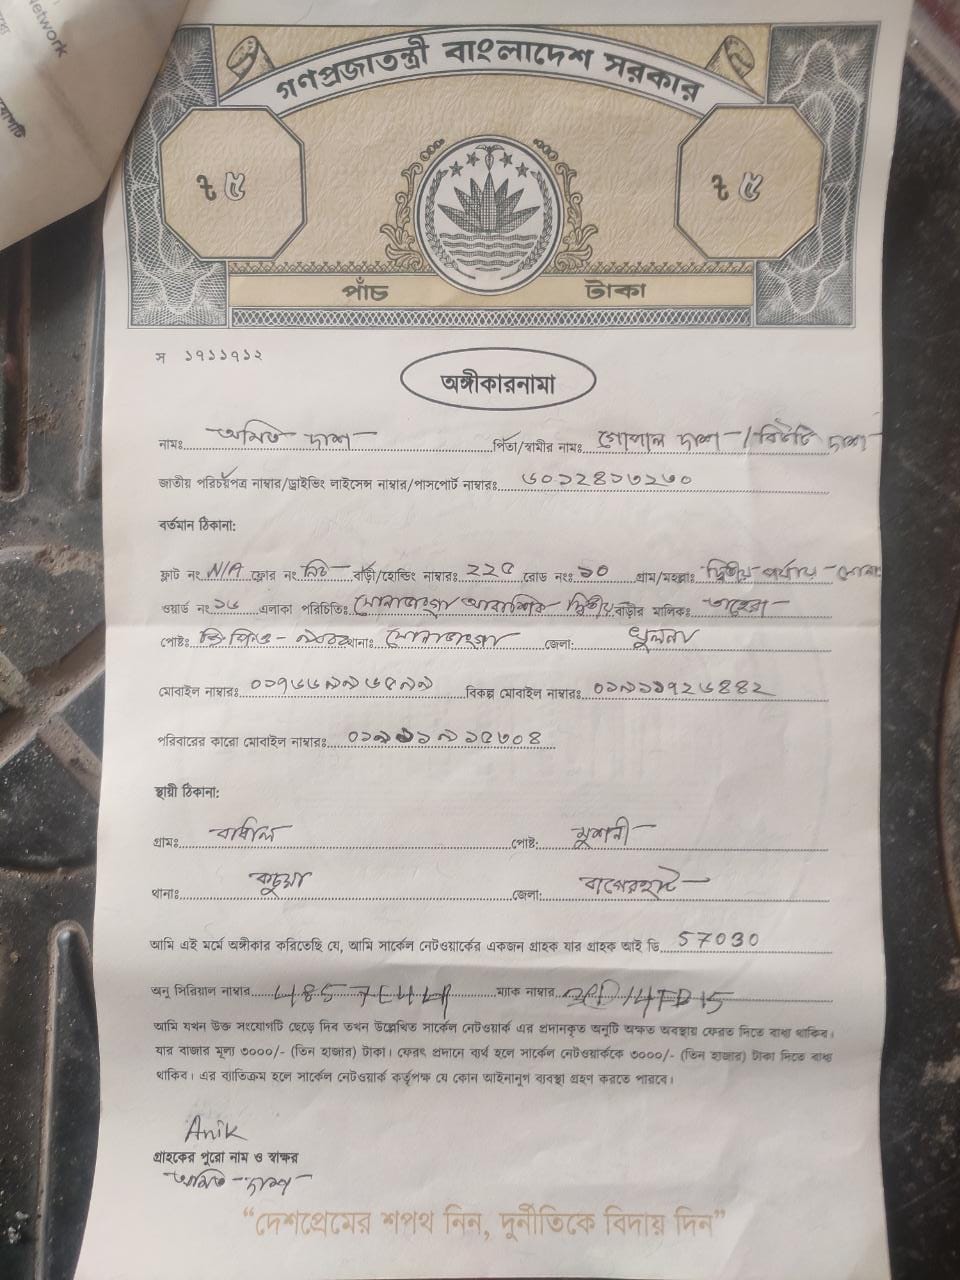 etwork
গণপ্রজাতন্ত্রী বাংলাদেশ সরকার
৳ ৫
৳ ৫
পাঁচ টাকা
স ১৭১১৭১২
অঙ্গীকারনামা
নামঃ অমিত দাশ পিতা/স্বামীর নামঃ গোপাল দাশ / বিউটি দাশ
জাতীয় পরিচয়পত্র নাম্বার/ড্রাইভিং লাইসেন্স নাম্বার/পাসপোর্ট নাম্বারঃ ৬০১২৪১৩২৩০
বর্তমান ঠিকানা:
ফ্লাট নং N/A ফ্লোর নং নিচ বাড়ী/হোল্ডিং নাম্বারঃ ২২৫ রোড নংঃ ১০ গ্রাম/মহল্লাঃ দ্বিতীয় পর্যায়
ওয়ার্ড নং ১৬ এলাকা পরিচিতিঃ সোনাডাঙ্গা আবাসিক দ্বিতীয় বাড়ীর মালিকঃ তাহেরা
পোষ্টঃ জিপিও থানাঃ সোনাডাঙ্গা জেলা: খুলনা
মোবাইল নাম্বারঃ ০১৭৬৬৯৯৬৫৯৯ বিকল্প মোবাইল নাম্বারঃ ০১৯১১৭২৬৪৪২
পরিবারের কারো মোবাইল নাম্বারঃ
স্থায়ী ঠিকানা:
গ্রামঃ বাধাল পোষ্ট:
থানাঃ কচুয়া জেলা: বাগেরহাট
আমি এই মর্মে অঙ্গীকার করিতেছি যে, আমি সার্কেল নেটওয়ার্কের একজন গ্রাহক যার গ্রাহক আই ডি 57030
অনু সিরিয়াল নাম্বার ম্যাক নাম্বার
আমি যখন উক্ত সংযোগটি ছেড়ে দিব তখন উল্লেখিত সার্কেল নেটওয়ার্ক এর প্রদানকৃত অনুটি অক্ষত অবস্থায় ফেরত দিতে বাধ্য থাকিব।
যার বাজার মূল্য ৩০০০/- (তিন হাজার) টাকা। ফেরৎ প্রদানে ব্যর্থ হলে সার্কেল নেটওয়ার্ককে ৩০০০/- (তিন হাজার) টাকা দিতে বাধ্য
থাকিব। এর ব্যতিক্রম হলে সার্কেল নেটওয়ার্ক কর্তৃপক্ষ যে কোন আইনানুগ ব্যবস্থা গ্রহণ করতে পারবে।
Anik
গ্রাহকের পুরো নাম ও স্বাক্ষর
অমিত দাশ
“দেশপ্রেমের শপথ নিন, দুর্নীতিকে বিদায় দিন”